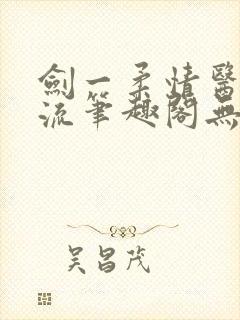 劍一柔情醫
流筆趣閣無
吴昌茂